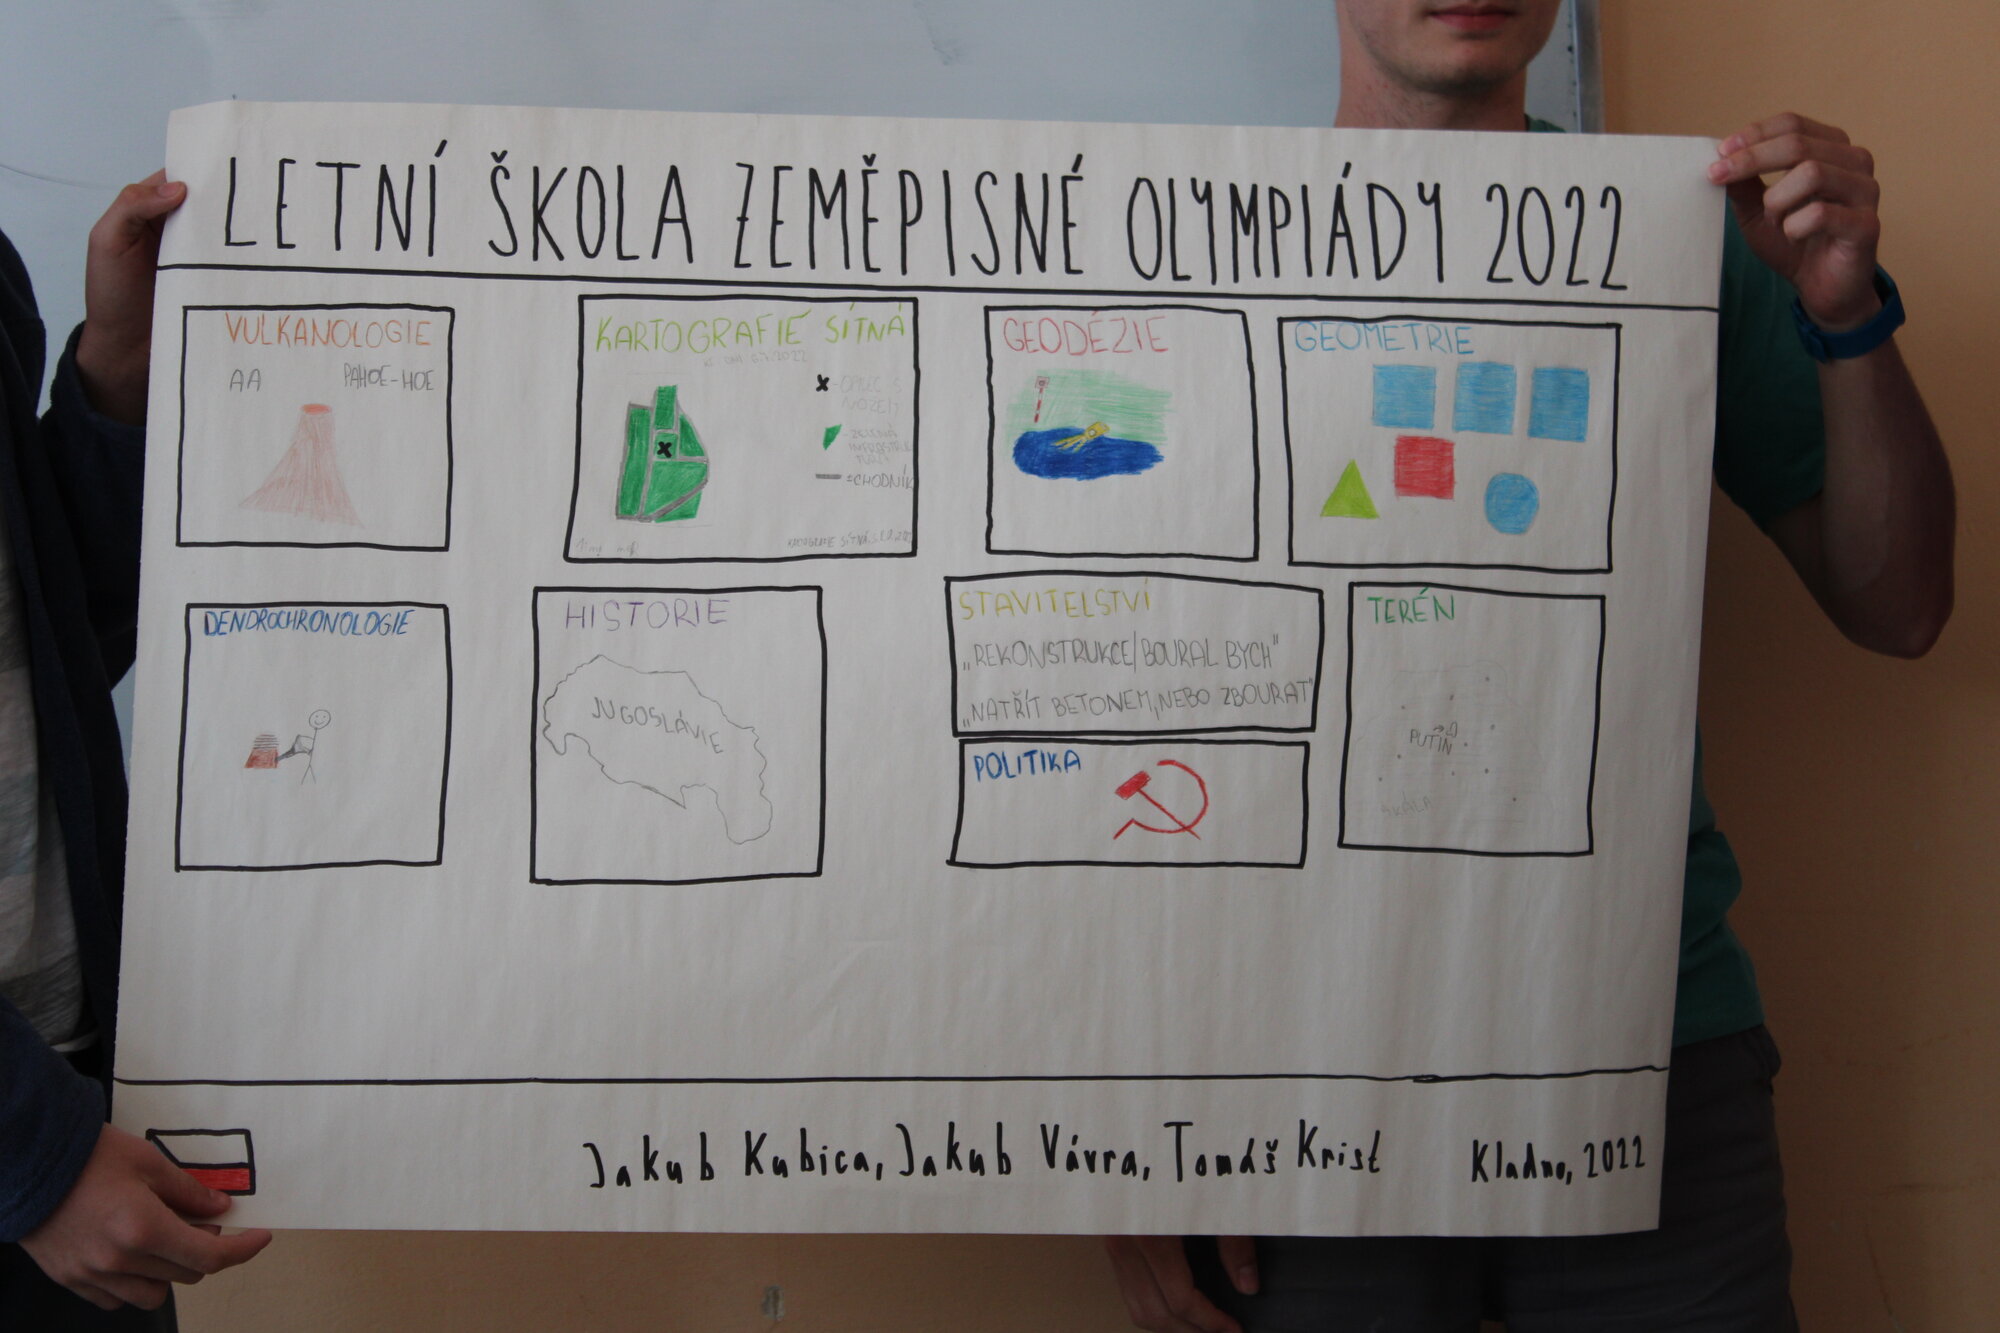 LETNÍ ŠKOLA ZEMĚPISNÉ OLYMPIÁDY 2022
VULKANOLOGIE
AA PAHOE-HOE
KARTOGRAFIE SÍTNÁ
KE DNI 6.7.2022
X - OPILEC S
NOŽEM
- ZELENÁ
INFRASTRUK
TURA
= CHODNÍK
KARTOGRAFIE SÍTNÁ
GEODÉZIE
GEOMETRIE
DENDROCHRONOLOGIE
HISTORIE
JUGOSLÁVIE
STAVITELSTVÍ
„REKONSTRUKCE/BOURAL BYCH"
„NATŘÍT BETONEM, NEBO ZBOURAT"
POLITIKA
TERÉN
PUTIN
SKÁLA
Jakub Kubica, Jakub Vávra, Tomáš Krist
Kladno, 2022